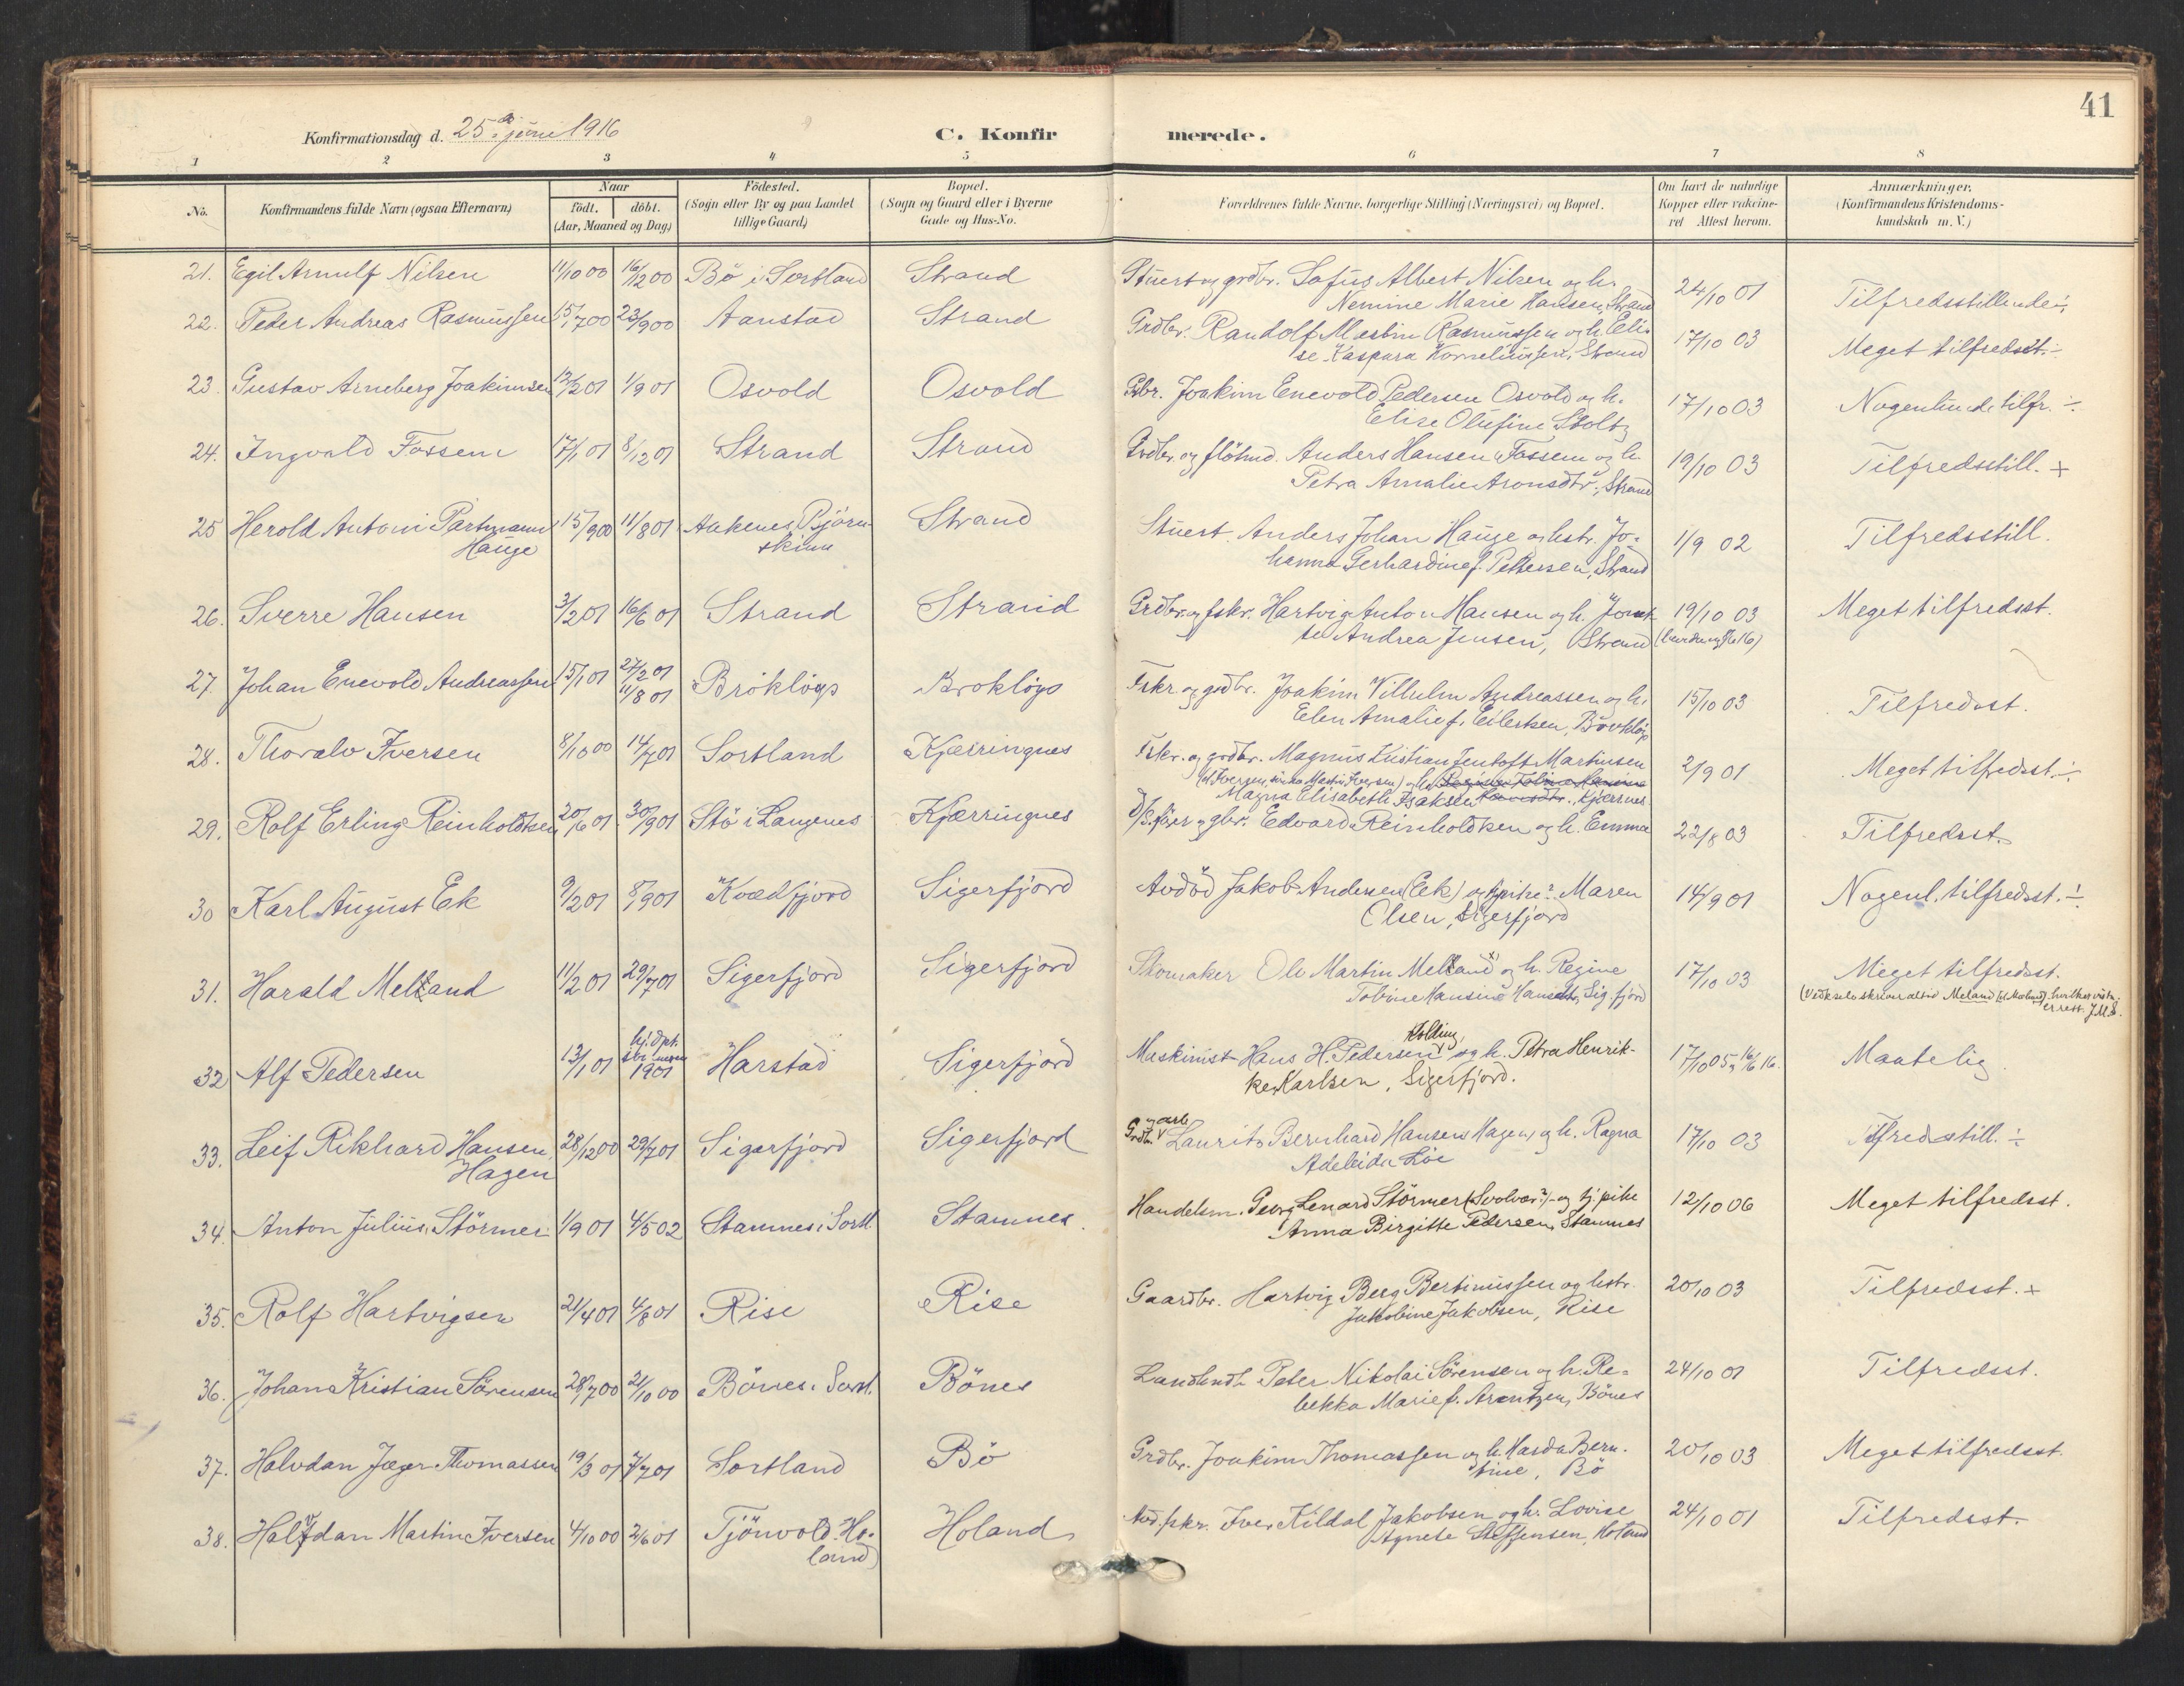 41
Konfirmationsdag d. 25de juni 1916
C. Konfirmerede.
1 2 3 4 5 6 7 8
No.
Konfirmandens fulde Navn (ogsaa Efternavn)
Naar
födt. döbt.
(Aar, Maaned og Dag)
Födested.
(Sogn eller By og paa Landet
tillige Gaard)
Bopæl.
(Sogn og Gaard eller i Byerne
Gade og Hus-No.
Forældrenes fulde Navne, borgerlige Stilling (Næringsvei) og Bopæl.
Om havt de naturlige
Kopper eller vakcine-
ret Attest herom.
Anmærkninger.
(Konfirmandens Kristendoms-
kundskab m. V.)
21. Egil Arnulf Nilsen 11/10 00 16/12 00 Bö i Sortland Strand Stuert og grdbr. Sofus Albert Nilsen og h. 24/10 01 Tilfredsstillende ÷
Nemine Marie Hansen, Strand
22. Peder Andreas Rasmussen 15/7 00 23/9 00 Aanstad Strand Grdbr. Randolf Martin Rasmussen og h. Eli- 17/10 03 Meget tilfredsst. ÷
se Kaspara Korneliussen, Strand
23. Gustav Arneberg Joakimsen 12/2 01 1/9 01 Osvold Osvold Gbr. Joakim Enevold Pedersen Osvold og h. 17/10 03 Nogenlunde tilfr. ÷
Elise Olufine Stoltz
24. Ingvald Fossem 17/1 01 8/12 01 Strand Strand Grdbr. og flötmd. Anders Hansen Fossem og h. 19/10 03 Tilfredsstill. +
Petra Amalie Aronsdtr., Strand
25 Herold Antoni Partmann 15/9 00 11/8 01 Aakenes, Björn- Strand Stuert Anders Johan Hauge og hstr. Jo- 1/9 02 Tilfredsstill.
Hauge skinn hanna Gerhardine f. Pettersen, Strand
26. Sverre Hansen 3/2 01 16/6 01 Strand Strand Grdbr. og fskr. Hartvig Anton Hansen og h. 19/10 03 Meget tilfredsst.
Andrea Jensen, Strand
27. Johan Enevold Andreassen 15/1 01 27/2 01 Brokløys Brokløys Fskr. og grdbr. Joakim Vilhelm Andreassen og h. 15/10 03 Tilfredsst.
11/8 01 Elen Amalie f. Eilertsen,
28. Thoralv Iversen 8/10 00 14/7 01 Sortland Kjærringnes Fskr. og grdbr. Magnus Kristian Jentoft Martinsen 2/9 01 Meget tilfredsst. ÷
Magna Elisabeth Isaksen, Kjærrnes
29. Rolf Erling Reinholdtsen 20/6 01 30/9 01 Stö i Langenes Kjærringnes D/S.förer og gbr. Edvard Reinholdtsen og h. Emma 22/8 03 Tilfredsst.
30 Karl August Ek 9/2 01 8/9 01 Kvædfjord Sigerfjord Avdöd Jakob Andersen (Ek) og Maren 14/9 01 Nogenl. tilfredsst. ÷
Olsen, Sigerfjord
31. Harald Melland 11/2 01 29/7 01 Sigerfjord Sigerfjord Skomaker Ole Martin Melland og h. Regine 17/10 03 Meget tilfredsst.
Tobine Hansine Hansdtr, Sig.fjord (Vedk. selv skriver altid Meland
32 Alf Pedersen 13/1 01 hj.dpt. 1901 Harstad Sigerfjord Maskinist Hans H. Pedersen Kolding og h. Petra Henrik- 17/10 05, 16/6 16. Maatelig
ke Karlsen, Sigerfjord.
33. Leif Rikhard Hansen, 28/12 00 29/7 01 Sigerfjord Sigerfjord Grdb. og arb. Laurits Bernhard Hansen Hagen og h. Ragna 17/10 03 Tilfredsstill. ÷
Hagen Adeleida Löe
34. Anton Julius Störmer 1/9 01 4/5 02 Stamnes i Sortl. Stamnes. Handelsm. Georg Lenard Störmer (Svolvær?) og tj. pike 12/10 06 Meget tilfredsst.
Anna Birgitte Pedersen, Stamnes
35. Rolf Hartvigsen 21/4 01 4/8 01 Rise Rise Gaardbr. Hartvig Berg Bertinussen og hstr. 20/10 03 Tilfredsst. +
Jakobine Jakobsen, Rise
36. Johan Kristian Sörensen 28/7 00 21/10 00 Bönes i Sortl. Bönes Landhndl. Peter Nikolai Sörensen og h. Re- 24/10 01 Tilfredsst.
bekka Marie f. Arentzen, Bönes
37. Halvdan Jæger Thomassen 19/3 01 7/7 01 Sortland Bö Grdbr. Joakim Thomassen og h. Harda Bern- 20/10 03 Meget tilfredsst.
tine, Bö
38. Halfdan Martin Iversen 4/10 00 2/6 01 Tjönvold (Ho- Holand Avd. fskr. Iver Kildal Jakobsen og h. Lovise 24/10 01 Tilfredsst.
land) Agnete Steffensen, Holand